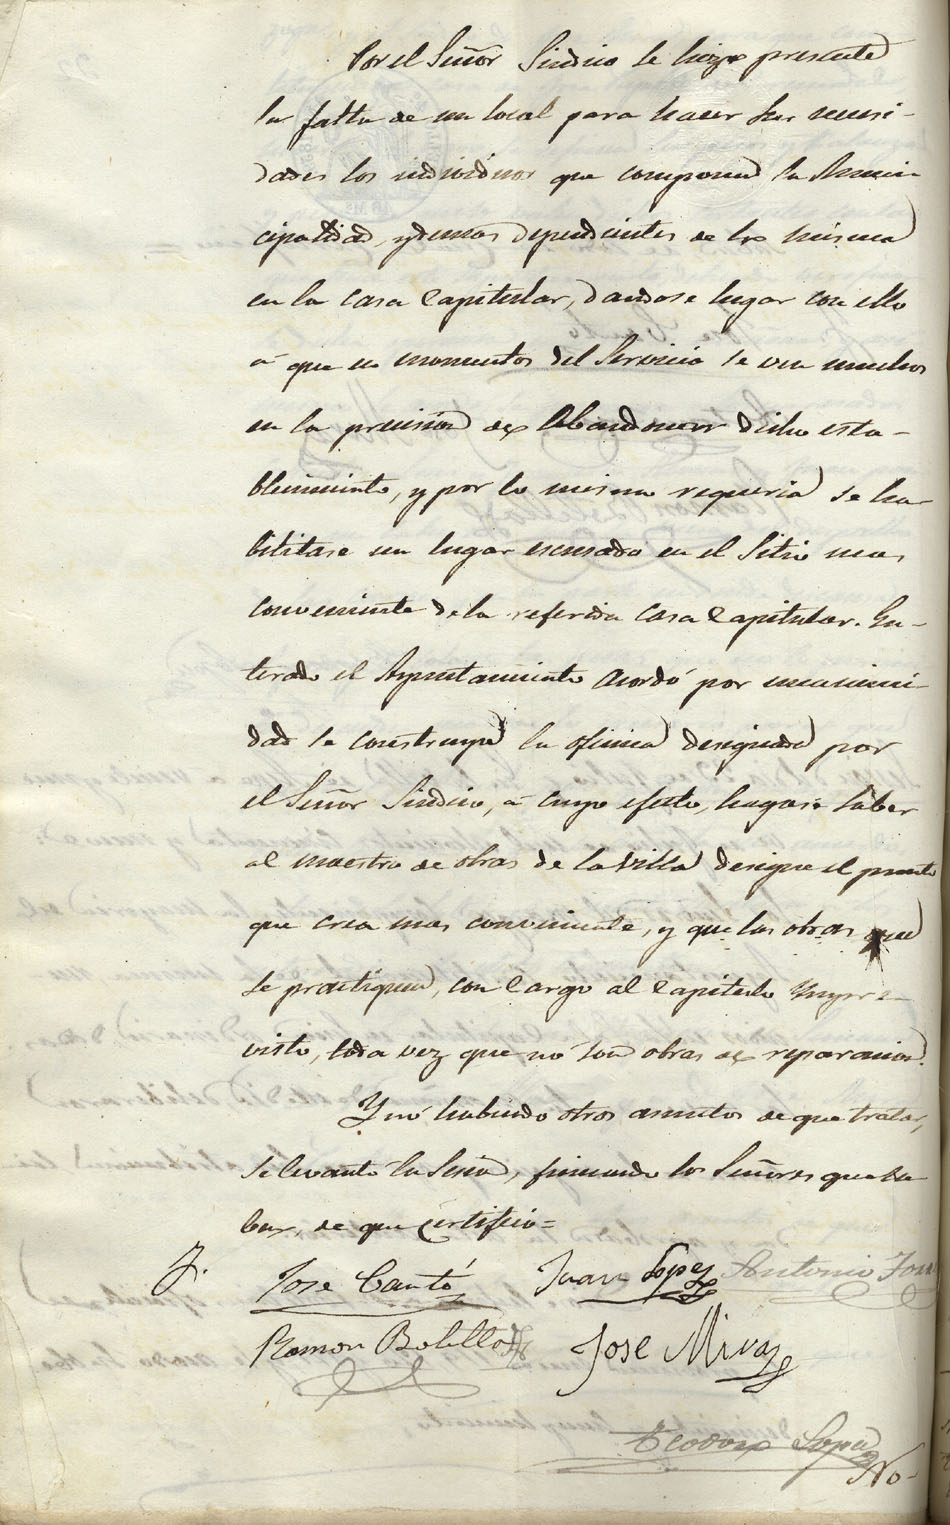 Por el Señor Sindico se hizo presente
la falta de un local para hacer sus necesi-
dades los individuos que componen la Muni-
cipalidad, y demas dependientes de la misma
en la casa Capitular, dandose lugar con ello
á que en momentos del Servicio se ven muchos
en la precision de abandonar dicho esta-
blecimiento, y por lo mismo requeria se ha-
bilitase un lugar escusado en el Sitio mas
conveniente de la referida casa Capitular. En-
terado el Ayuntamiento acordó por unanimi-
dad se construya la oficina designada por
el Señor Sindico, á cuyo efecto, hagase saber
al maestro de obras de la Villa designe el punto
que crea mas conveniente, y que las obras que
se practiquen, con cargo al Capitulo Impre-
visto, toda vez que nó son obras de reparacion.
Y nó habiendo otros asuntos de que tratar,
se levantó la Sesion, firmando los Señores que sa-
ben, de que certifico=
Jose Cantó Juan Lopez Antonio
Ramon Botella Jose Mira
Teodoro Lopez
No-